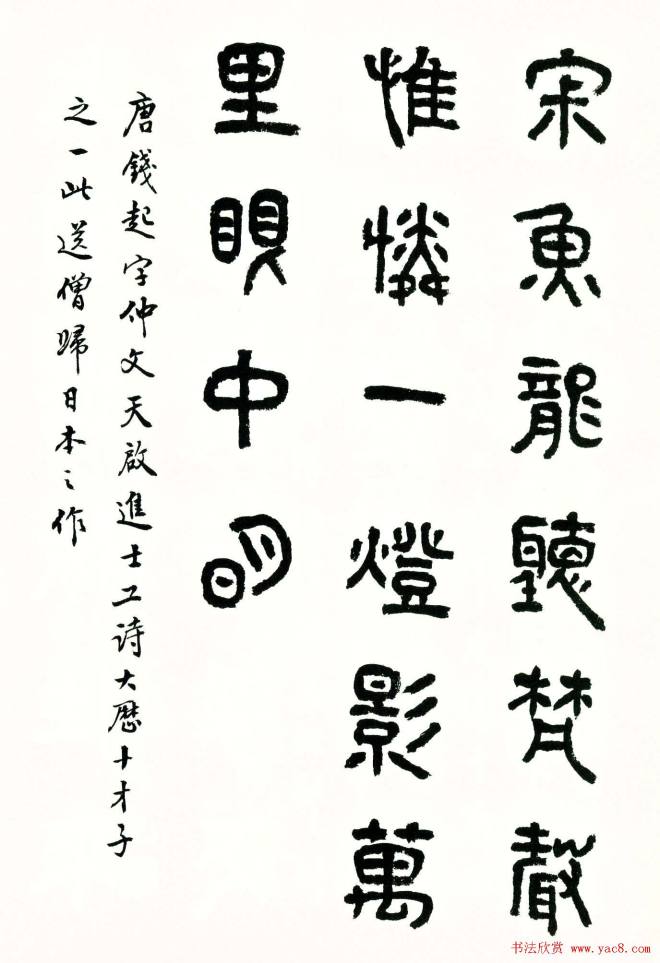 寂魚龍聽梵聲
惟憐一燈影萬
里眼中明
唐錢起字仲文天啟進士工詩大曆十才子
之一此送僧歸日本之作
书法欣赏 www.yac8.com